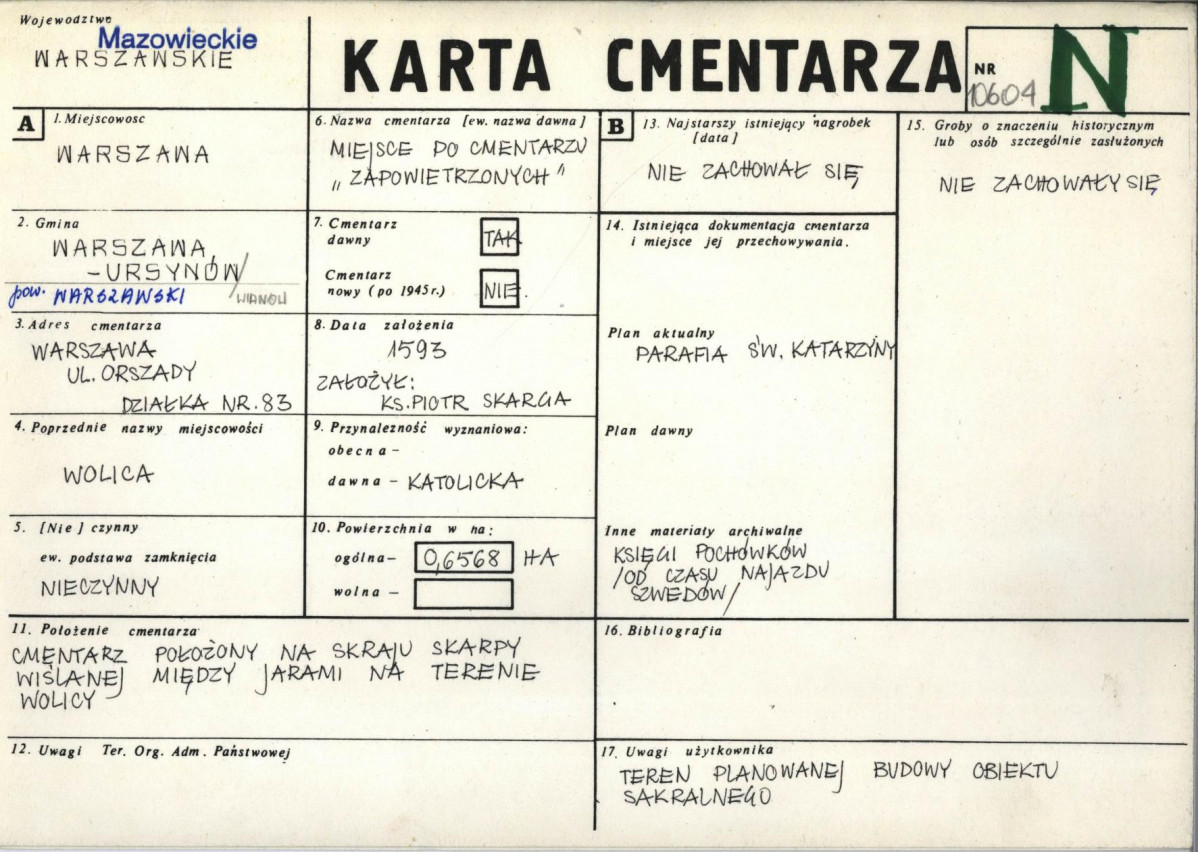 Województwo
Mazowieckie
WARSZAWSKIE
KARTA CMENTARZA
NR
10604
N
A
1. Miejscowosc
WARSZAWA
2. Gmina
WARSZAWA,
-URSYNÓW/
pow. WARSZAWSKI
3. Adres cmentarza
WARSZAWA
UL. ORSZADY
DZIAŁKA NR. 83
4. Poprzednie nazwy miejscowości
WOLICA
5. [Nie] czynny
ew. podstawa zamknięcia
NIECZYNNY
6. Nazwa cmentarza [ew. nazwa dawna]
MIEJSCE PO CMENTARZU
„ZAPOWIETRZONYCH"
7. Cmentarz
dawny
TAK
Cmentarz
nowy (po 1945r.)
NIE
8. Data założenia
1593
ZAŁOŻYŁ:
KS. PIOTR SKARGA
9. Przynalezność wyznaniowa:
obecna -
dawna - KATOLICKA
10. Powierzchnia w ha:
ogólna - 0,6568 HA
wolna -
11. Położenie cmentarza
CMENTARZ POŁOŻONY NA SKRAJU SKARPY
WIŚLANEJ MIĘDZY JARAMI NA TERENIE
WOLICY
12. Uwagi Ter. Org. Adm. Państwowej
B
13. Najstarszy istniejący nagrobek
[data]
NIE ZACHOWAŁ SIĘ
14. Istniejąca dokumentacja cmentarza
i miejsce jej przechowywania.
Plan aktualny
PARAFIA ŚW. KATARZYNY
Plan dawny
Inne materiały archiwalne
KSIĘGI POCHÓWKÓW
/OD CZASU NAJAZDU
SZWEDÓW/
15. Groby o znaczeniu historycznym
lub osób szczególnie zasłużonych
NIE ZACHOWAŁY SIĘ
16. Bibliografia
17. Uwagi użytkownika
TEREN PLANOWANEJ BUDOWY OBIEKTU
SAKRALNEGO